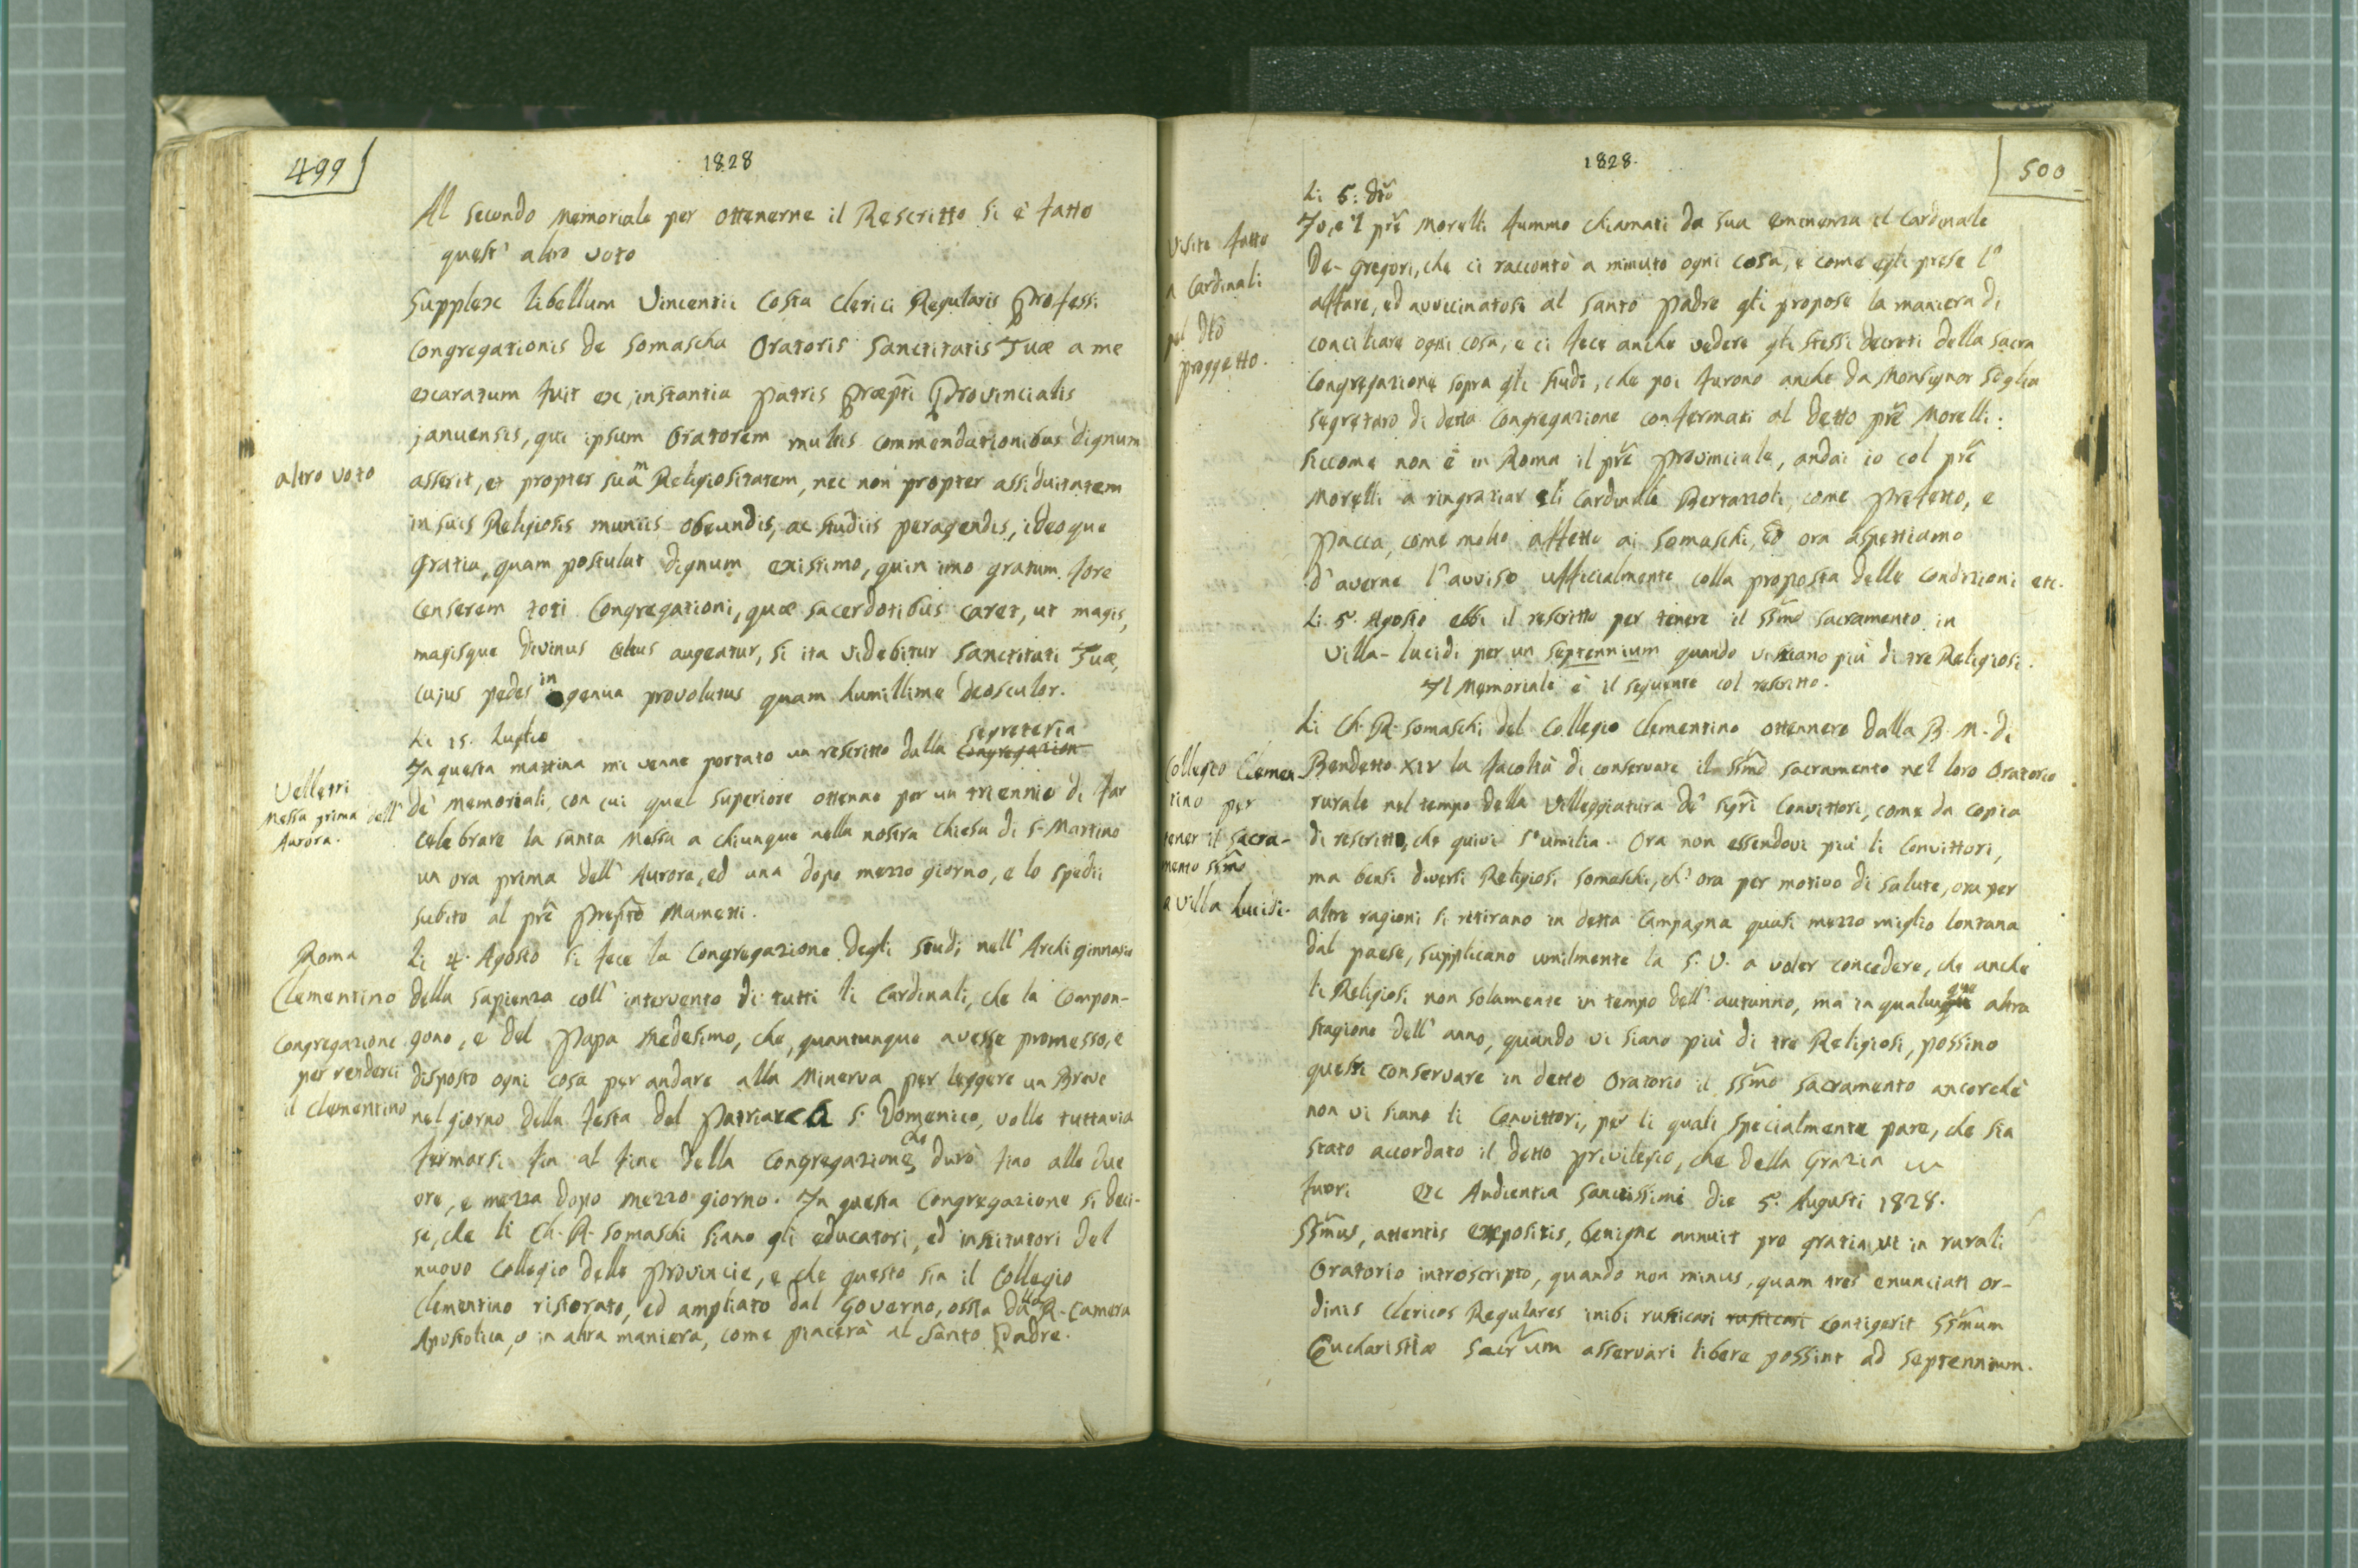 499
1828
Al secondo Memoriale per ottenerne il Rescritto si è fatto
quest' altro voto
Supplex libellum Vincentii Costa Clerici Regularis Professi
Congregationis de Somascha Oratoris Sanctitatis Tuæ a me
exaratum fuit ex instantia Patris Præpti Provincialis
januensis, qui ipsum Oratorem multis commendationibus dignum
altro voto
asserit, et propter suam Religiositatem, nec non propter assiduitatem
in suis Religiosis muniis obeundis, ac studiis peragendis, ideoque
gratia, quam postulat dignum existimo, quin imo gratum fore
censerem toti Congregationi, quæ sacerdotibus caret, ut magis,
magisque divinus cultus augeatur, si ita videbitur Sanctitati Tuæ,
cujus pedes in genua provolutus quam humillime deosculor.
Li 15. Luglio
In questa mattina mi venne portato un rescritto dalla Congregazion segreteria
Velletri
Messa prima dell'
Aurora.
de' Memoriali, con cui quel Superiore ottenne per un triennio di far
celebrare la santa Messa a chiunque nella nostra chiesa di S. Martino
un ora prima dell' Aurora, ed una dopo mezzo giorno, e lo spedii
subito al prē Preposto Mametti.
Roma
Clementino
Congregazione
per renderci
il Clementino
Li 4. Agosto si fece la Congregazione degli studi nell' Archiginnasio
della Sapienza coll' intervento di tutti li Cardinali, che la compon-
gono, e del Papa medesimo, che, quantunque avesse promesso, e
disposto ogni cosa per andare alla Minerva per leggere un Breve
nel giorno della festa del Patriarca S. Domenico, volle tuttavia
fermarsi fin al fine della Congregazione che durò fino alle due
ore, e mezza dopo mezzo giorno. In questa Congregazione si deci-
se, che li Ch. R. Somaschi siano gli educatori, ed institutori del
nuovo Collegio delle Provincie, e che questo sia il Collegio
Clementino ristorato, ed ampliato dal Governo, ossia dalla R. Camera
Apostolica, o in altra maniera, come piacerà al Santo Padre.
1828.
500
Li 5: dtō
Visite fatte
a Cardinali
pel dtō
proggetto.
Io, e 'l prē Morelli fummo chiamati da sua eminenza il Cardinale
De-Gregori, che ci raccontò a minuto ogni cosa, e come egli prese l'
affare, ed avvicinatosi al santo Padre gli propose la maniera di
conciliare ogni cosa, e ci fece anche vedere gli stessi decreti della sacra
Congregazione sopra gli studi, che poi furono anche da Monsignor Soglia
segretaro di detta Congregazione confermati al detto prē Morelli:
siccome non è in Roma il prē Provinciale, andai io col prē
Morelli a ringraziar gli Cardinali Bertazzoli, come Prefetto, e
Pacca, come molto affetto ai Somaschi, ed ora aspettiamo
d' averne l' avviso ufficialmente colla proposta delle condizioni etc.
Li 5. Agosto ebbi il rescritto per tenere il SSmō Sacramento in
Villa-Lucidi per un septennium quando vi siano più di tre Religiosi.
Il Memoriale è il seguente col rescritto.
Collegio Clemen-
tino per
tener il Sacra-
mento SSmō
a Villa Lucidi.
Li Ch. R. Somaschi del Collegio Clementino ottennero dalla B. M. di
Bendetto XIV la facoltà di conservare il SSmō Sacramento nel loro Oratorio
rurale nel tempo della Villeggiatura de' Sigrī Convittori, come da copia
di rescritto, che quivi s' umilia. Ora non essendovi più li Convittori,
ma bensì diversi Religiosi Somaschi, ch' ora per motivo di salute, ora per
altre ragioni si ritirano in detta Campagna quasi mezzo miglio lontana
dal paese, supplicano umilmente la S. V. a voler concedere, che anche
li Religiosi non solamente in tempo dell' autunno, ma in qualunque altra
stagione dell' anno, quando vi siano più di tre Religiosi, possino
questi conservare in detto Oratorio il SSmō Sacramento ancorchè
non vi siano li Convittori, per li quali specialmente pare, che sia
stato accordato il detto privilegio, che della Grazia
fuori Ex Audientia Sanctissimi die 5. Augusti 1828.
SSmūs, attentis expositis, benigne annuit pro gratia, ut in rurali
Oratorio introscripto, quando non minus, quam tres enunciati or-
dinis Clericos Regulares inibi rusticari rusticari contigerit SSmūm
Eucharistiæ Sacrūm asservari libere possint ad septennium.